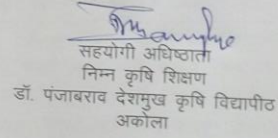 सहयोगी अधिष्ठाता
निम्न कृषि शिक्षण
डॉ. पंजाबराव देशमुख कृषि विद्यापीठ
अकोला